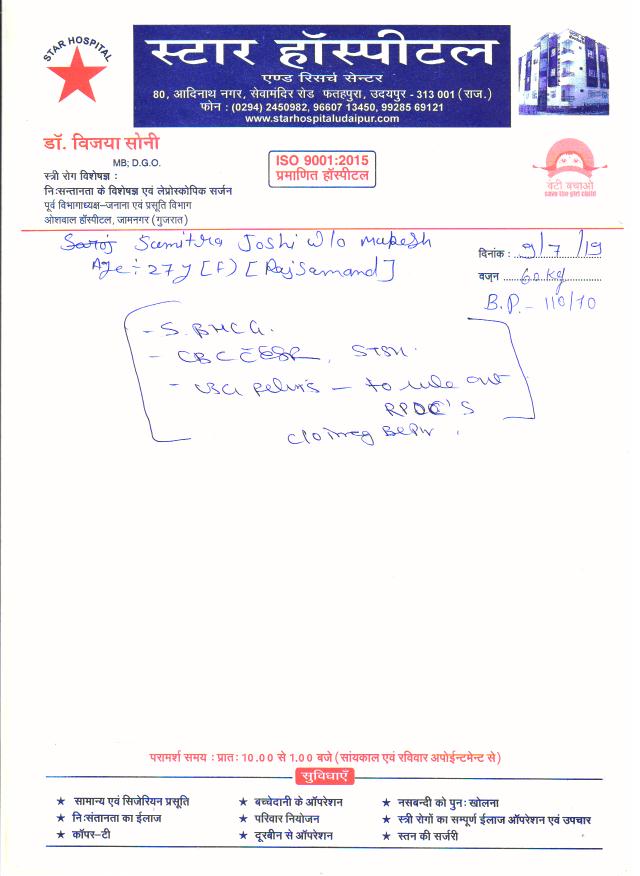 STAR HOSPITAL
स्टार हॉस्पीटल
एण्ड रिसर्च सेन्टर
80, आदिनाथ नगर, सेवामंदिर रोड फतहपुरा, उदयपुर - 313 001 (राज.)
फोन : (0294) 2450982, 96607 13450, 99285 69121
www.starhospitaludaipur.com
डॉ. विजया सोनी
MB; D.G.O.
स्त्री रोग विशेषज्ञ :
निःसन्तानता के विशेषज्ञ एवं लेप्रोस्कोपिक सर्जन
पूर्व विभागाध्यक्ष-जनाना एवं प्रसूति विभाग
ओशवाल हॉस्पीटल, जामनगर (गुजरात)
ISO 9001:2015
प्रमाणित हॉस्पीटल
बेटी बचाओ
save the girl child
Saroj Sumitra Joshi w/o Mukesh
Age :- 27 y [F] [Rajsamand]
दिनांक : 9/7/19
वजन 60 Kg
B.P. - 110/70
- S. BHCG.
- CBC C ESR, STSH.
- USG pelvis - to rule out
RPOC'S
परामर्श समय : प्रातः 10.00 से 1.00 बजे (सांयकाल एवं रविवार अपोईन्टमेन्ट से)
सुविधाएँ
★ सामान्य एवं सिजेरियन प्रसूति
★ निःसंतानता का ईलाज
★ कॉपर-टी
★ बच्चेदानी के ऑपरेशन
★ परिवार नियोजन
★ दूरबीन से ऑपरेशन
★ नसबन्दी को पुनः खोलना
★ स्त्री रोगों का सम्पूर्ण ईलाज ऑपरेशन एवं उपचार
★ स्तन की सर्जरी